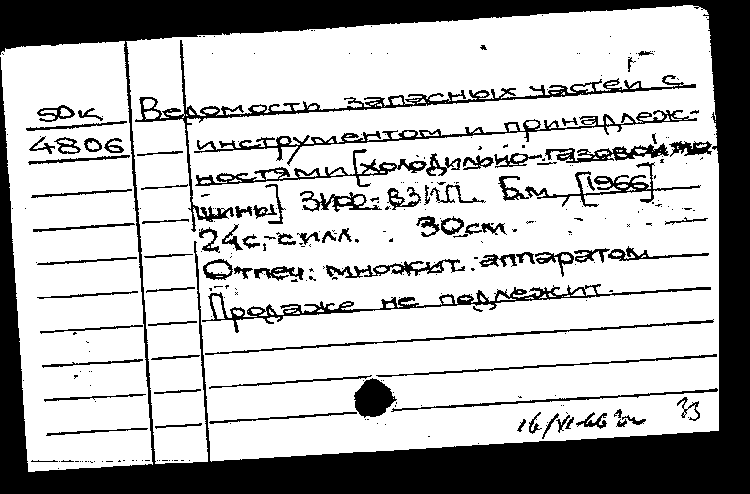 50к Ведомость запасных частей с
4806 инструментом и принадлеж-
ностями [холодильно-газовой ма-
шины] ЗИФ-ВЗИП. Б.м., [1966]
24с. с илл. 30см.
Отпеч. множит. аппаратом
Продаже не подлежит.
16/VI-66
33